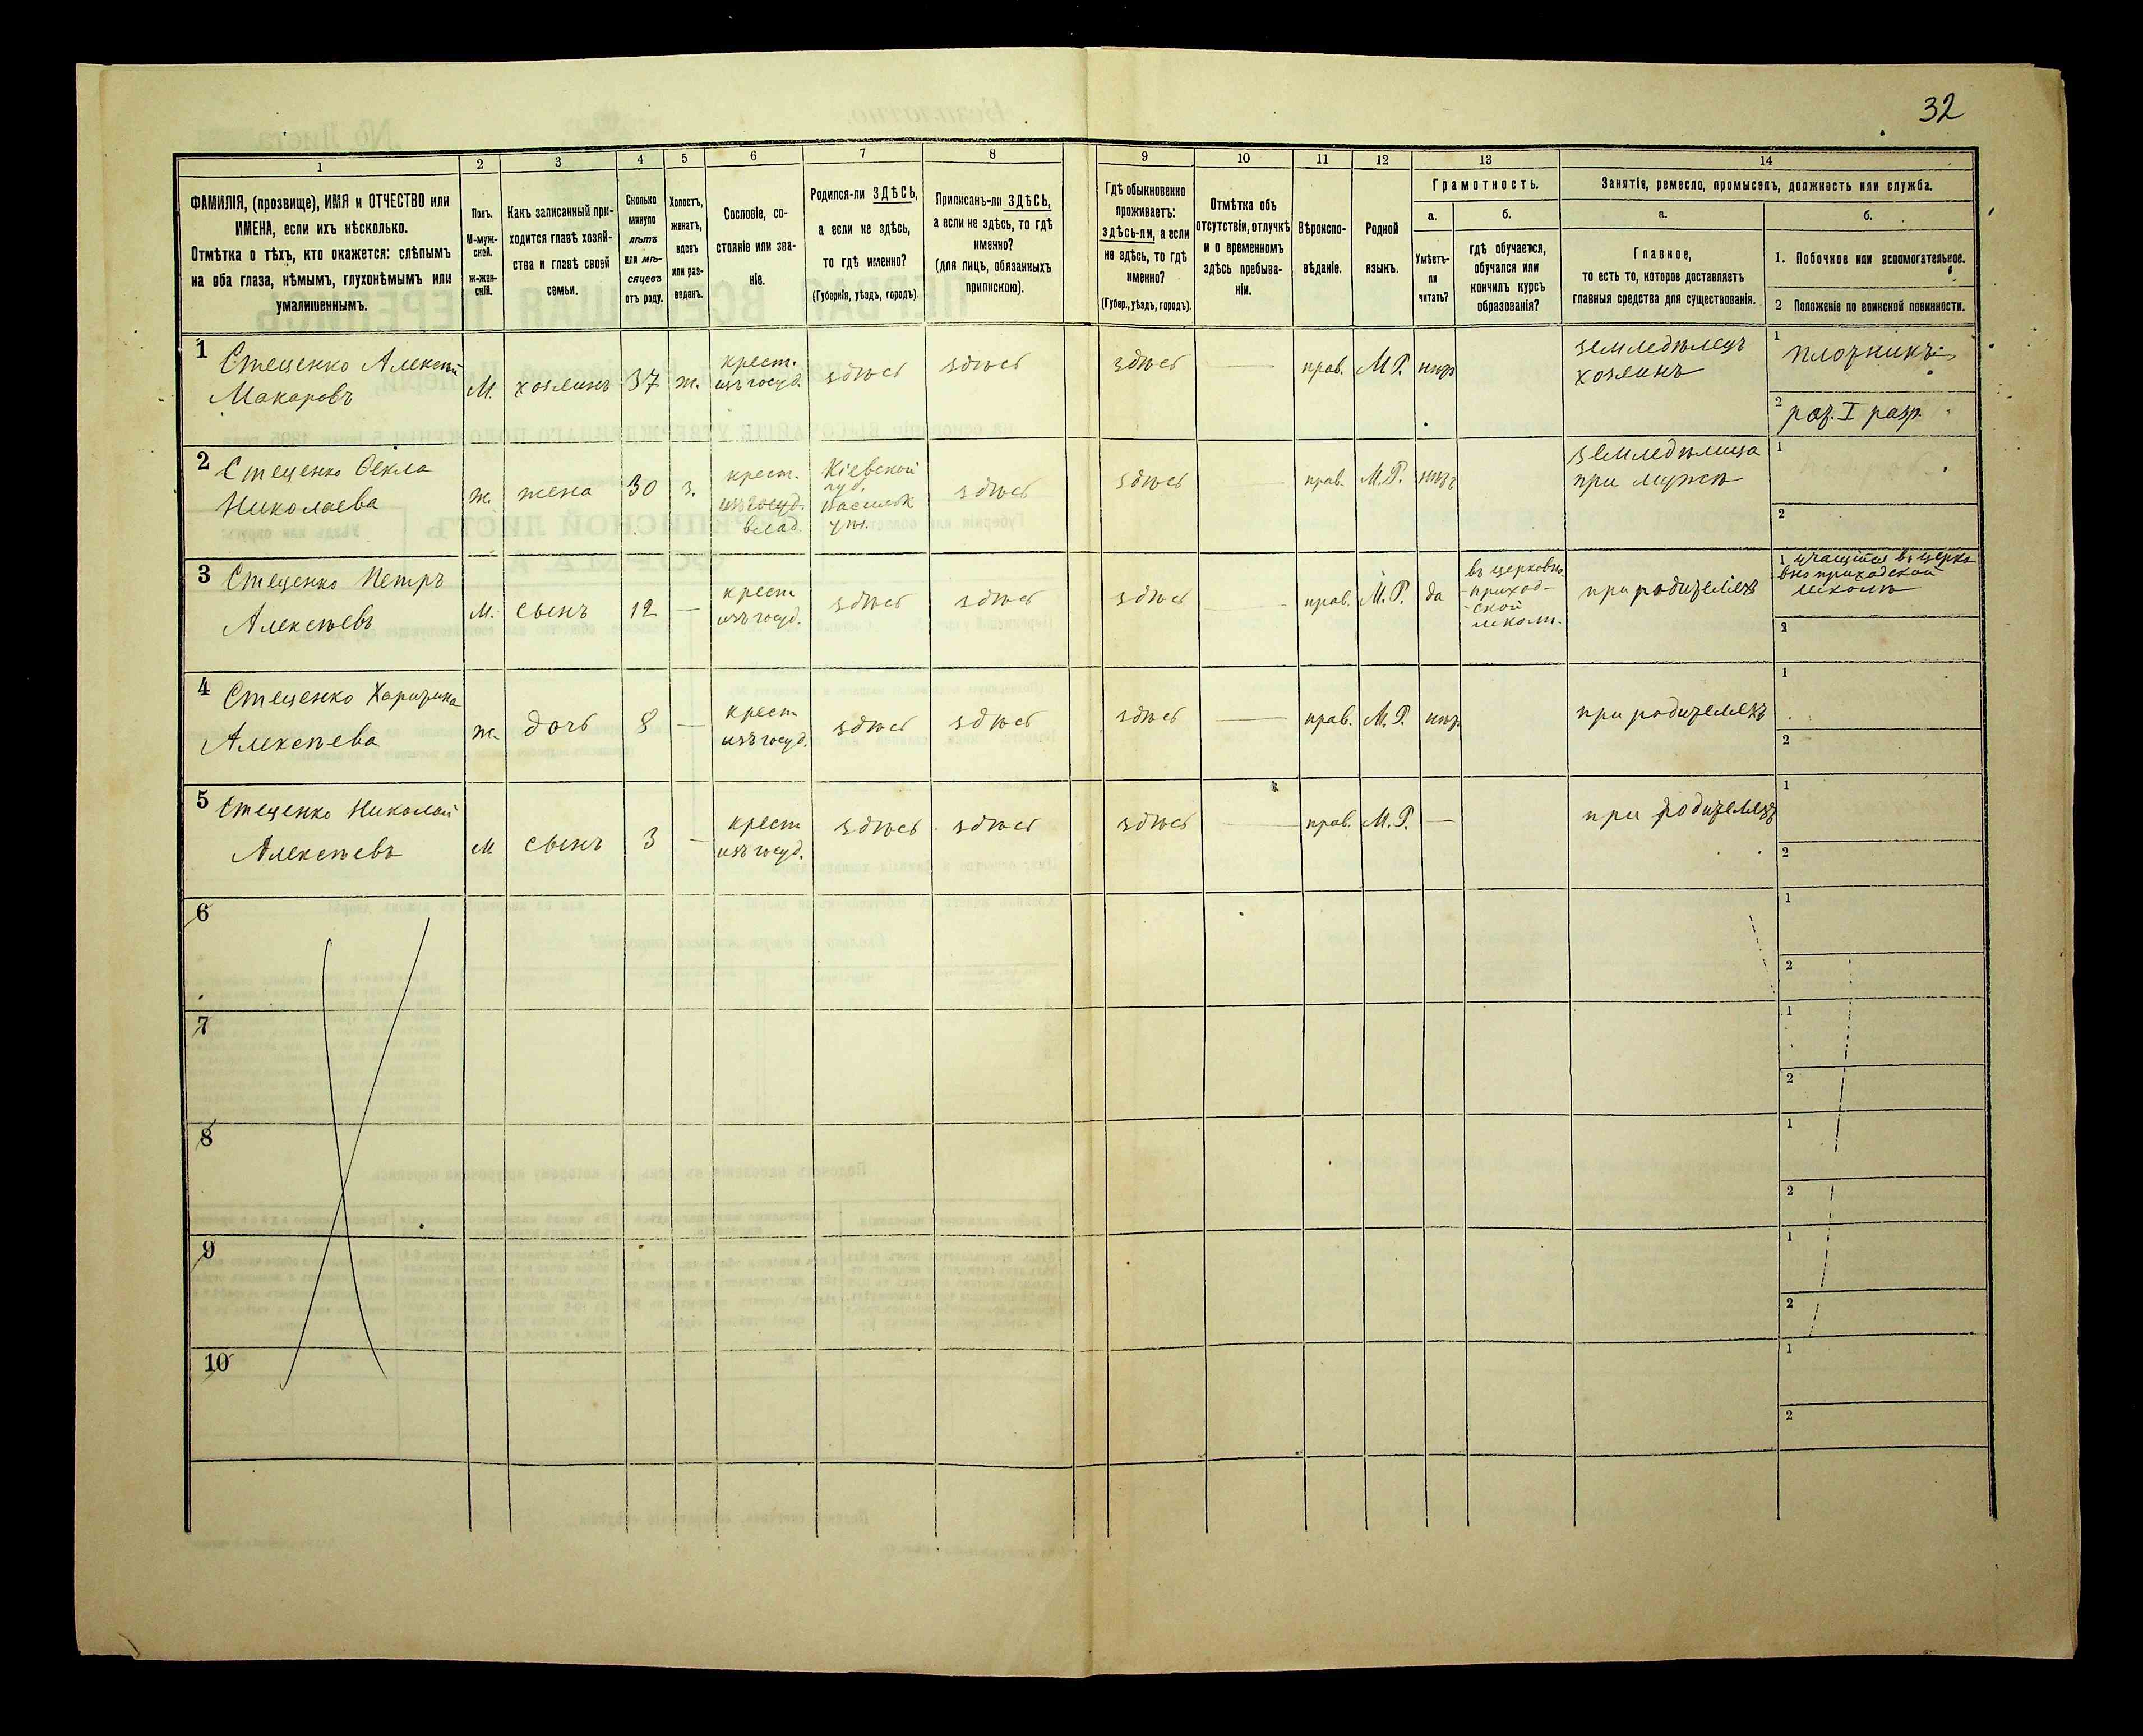 32
1 2 3 4 5 6 7 8 9 10 11 12 13 14
ФАМИЛІЯ, (прозвище), ИМЯ и ОТЧЕСТВО или
ИМЕНА, если ихъ нѣсколько.
Отмѣтка о тѣхъ, кто окажется: слѣпымъ
на оба глаза, нѣмымъ, глухонѣмымъ или
умалишеннымъ.
Полъ.
М-муж-
ской.
ж-жен-
скій.
Какъ записанный при-
ходится главѣ хозяй-
ства и главѣ своей
семьи.
Сколько
минуло
лѣтъ
или мѣ-
сяцевъ
отъ роду.
Холостъ,
женатъ,
вдовъ
или раз-
веденъ.
Сословіе, со-
стояніе или зва-
ніе.
Родился-ли ЗДѢСЬ,
а если не здѣсь,
то гдѣ именно?
(Губернія, уѣздъ, городъ).
Приписанъ-ли ЗДѢСЬ,
а если не здѣсь, то гдѣ
именно?
(для лицъ, обязанныхъ
припискою).
Гдѣ обыкновенно
проживаетъ:
здѣсь-ли, а если
не здѣсь, то гдѣ
именно?
(Губер., уѣздъ, городъ).
Отмѣтка объ
отсутствіи, отлучкѣ
и о временномъ
здѣсь пребыва-
ніи.
Вѣроиспо-
вѣданіе.
Родной
языкъ.
Грамотность.
а.
Умѣетъ-
ли
читать?
б.
гдѣ обучается,
обучался или
кончилъ курсъ
образованія?
Занятіе, ремесло, промыселъ, должность или служба.
а.
Главное,
то есть то, которое доставляетъ
главныя средства для существованія.
б.
1. Побочное или вспомогательное.
2 Положеніе по воинской повинности.
1 Стеценко Алексѣй
Макаровъ
М.
хозяинъ
37
ж.
крест.
изъ госуд.
здѣсь
здѣсь
здѣсь
—
прав.
М.Р.
нѣтъ
земледѣлецъ
хозяинъ
1
плотникъ
2
рат. I разр.
2 Стеценко Ѳекла
Николаева
ж.
жена
30
з.
крест.
изъ госуд.
влад.
Кіевской
губ.
Васильк
уѣз.
здѣсь
здѣсь
—
прав.
М.Р.
нѣтъ
земледѣлица
при мужѣ
1
2
3 Стеценко Петръ
Алексѣевъ
М.
сынъ
12
—
крест
изъ госуд.
здѣсь
здѣсь
здѣсь
—
прав.
М.Р.
да
въ церковно
-приход-
ской
школѣ.
при родителяхъ
1 учащійся въ церко
вно приходской
школѣ
2
4 Стеценко Харитина
Алексѣева
ж.
дочь
8
—
крест
изъ госуд.
здѣсь
здѣсь
здѣсь
—
прав.
М.Р.
нѣтъ
при родителяхъ
1
2
5 Стеценко Николай
Алексѣевъ
М
сынъ
3
—
крест
изъ госуд.
здѣсь
здѣсь
здѣсь
—
прав.
М.Р.
—
при родителяхъ
1
2
6
1
2
7
1
2
8
1
2
9
1
2
10
1
2